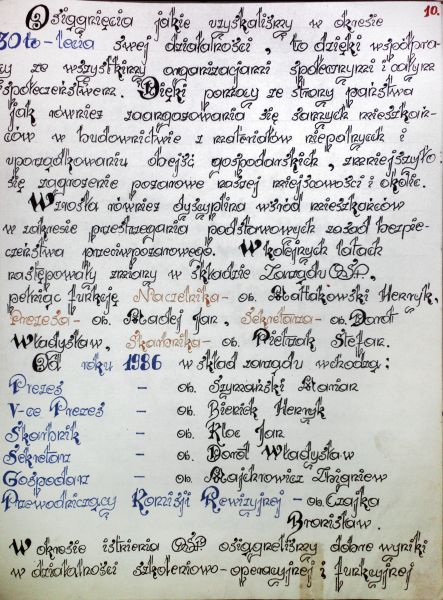 10.
Osiągnięcia jakie uzyskaliśmy w okresie
30to-lecia swej działalności, to dzięki współpra-
cy ze wszystkimi organizacjami społecznymi i całym
społeczeństwem. Dzięki pomocy ze strony państwa
jak również zaangażowania się samych mieszkań-
ców w budownictwie z materiałów niepalnych i
uporządkowaniu obejść gospodarskich, zmniejszyło
się zagrożenie pożarowe naszej miejscowości i okolic.
Wzrosła również dyscyplina wśród mieszkańców
w zakresie przestrzegania podstawowych zasad bezpie-
czeństwa przeciwpożarowego. W kolejnych latach
następowały zmiany w składzie Zarządu OSP,
pełniąc funkcję Naczelnika - ob. Małakowski Henryk,
Prezesa - ob. Madej Jan, Sekretarza - ob. Daroń
Władysław, Skarbnika - ob. Pietrzak Stefan.
Od roku 1986 w skład zarządu wchodzą:
Prezes - ob. Szymański Marian
V-ce Prezes - ob. Biernik Henryk
Skarbnik - ob. Kloc Jan
Sekretarz - ob. Daroń Władysław
Gospodarz - ob. Majchrowicz Zbigniew
Przewodniczący Komisji Rewizyjnej - ob. Czajka
Bronisław.
W okresie istnienia OSP osiągnęliśmy dobre wyniki
w działalności szkoleniowo-operacyjnej i funkcyjnej